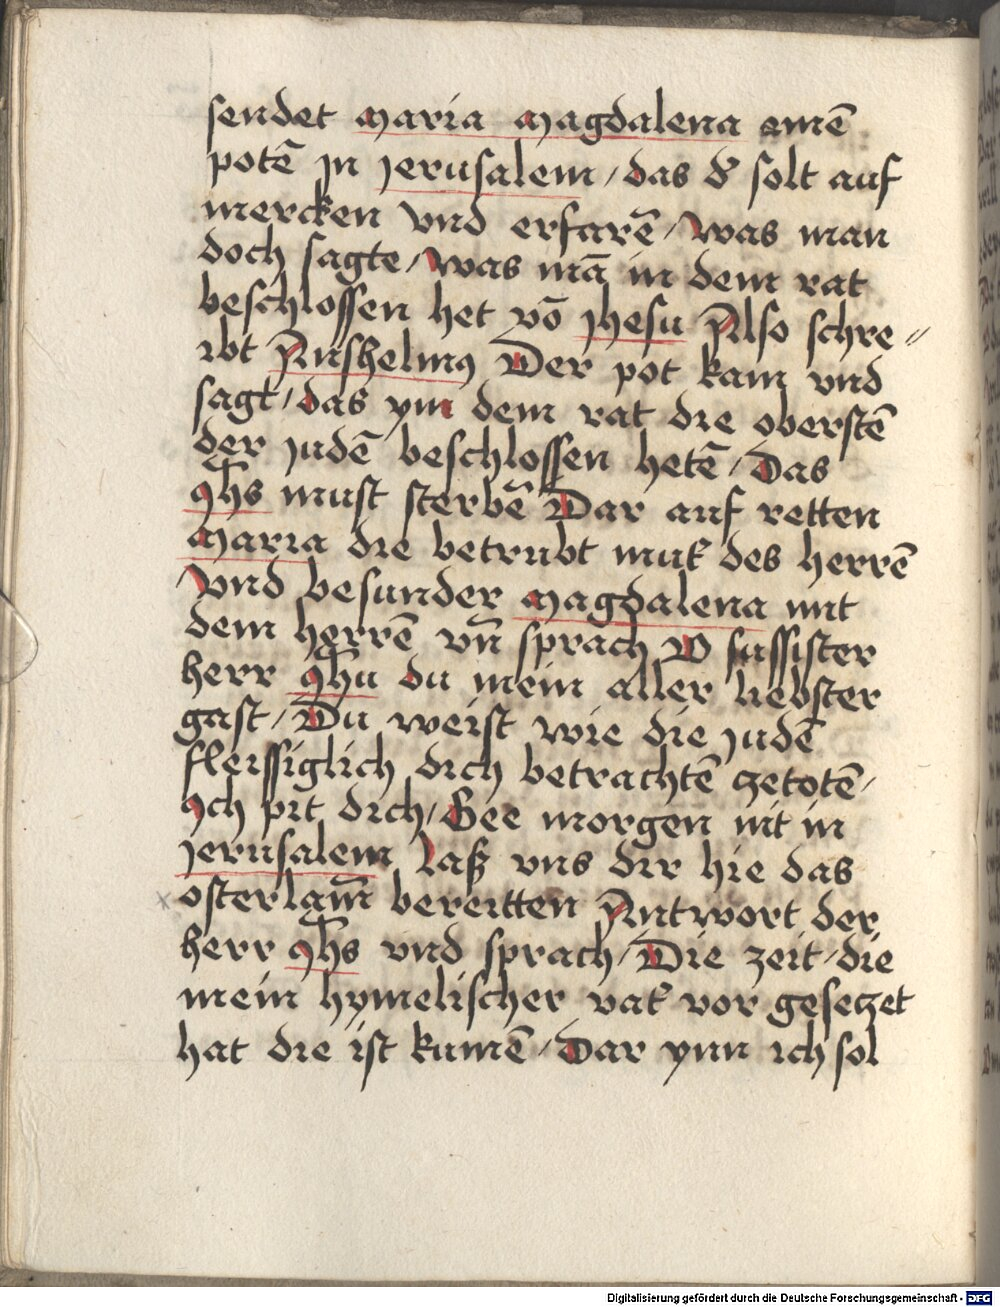 sendet Maria Magdalena einē
potē jn jerusalem / das d̾ solt auf
mercken vnd erfarē / was man
doch sagte / was mā in dem rat
beschlossen het vō jhesu Also schre//
ibt Anshelmꝰ Der pot kam vnd
sagt / das yn dem rat die oberstē
der judē beschlossen hetē / Das
Jh̄s must sterbē Dar auf retten
Maria die betrubt mut̾ des herrē
/ vnd besunder Magdalena mit
dem herrē vn̄ sprach O sussister
herr Jh̄u du mein aller liebster
gast / Du weist wie die judē
fleissiglich dich betrachtē zetotē /
Ich pit dich / Gee morgen nit in
jerusalem laß vns dir hie das
osterlam̄ bereitten Antwort der
herr Jh̄s vnd sprach / Die zeit / die
mein hymelischer vat̾ vor gesetzet
hat die ist kumē / Dar ynn ich sol
Digitalisierung gefördert durch die Deutsche Forschungsgemeinschaft - DFG